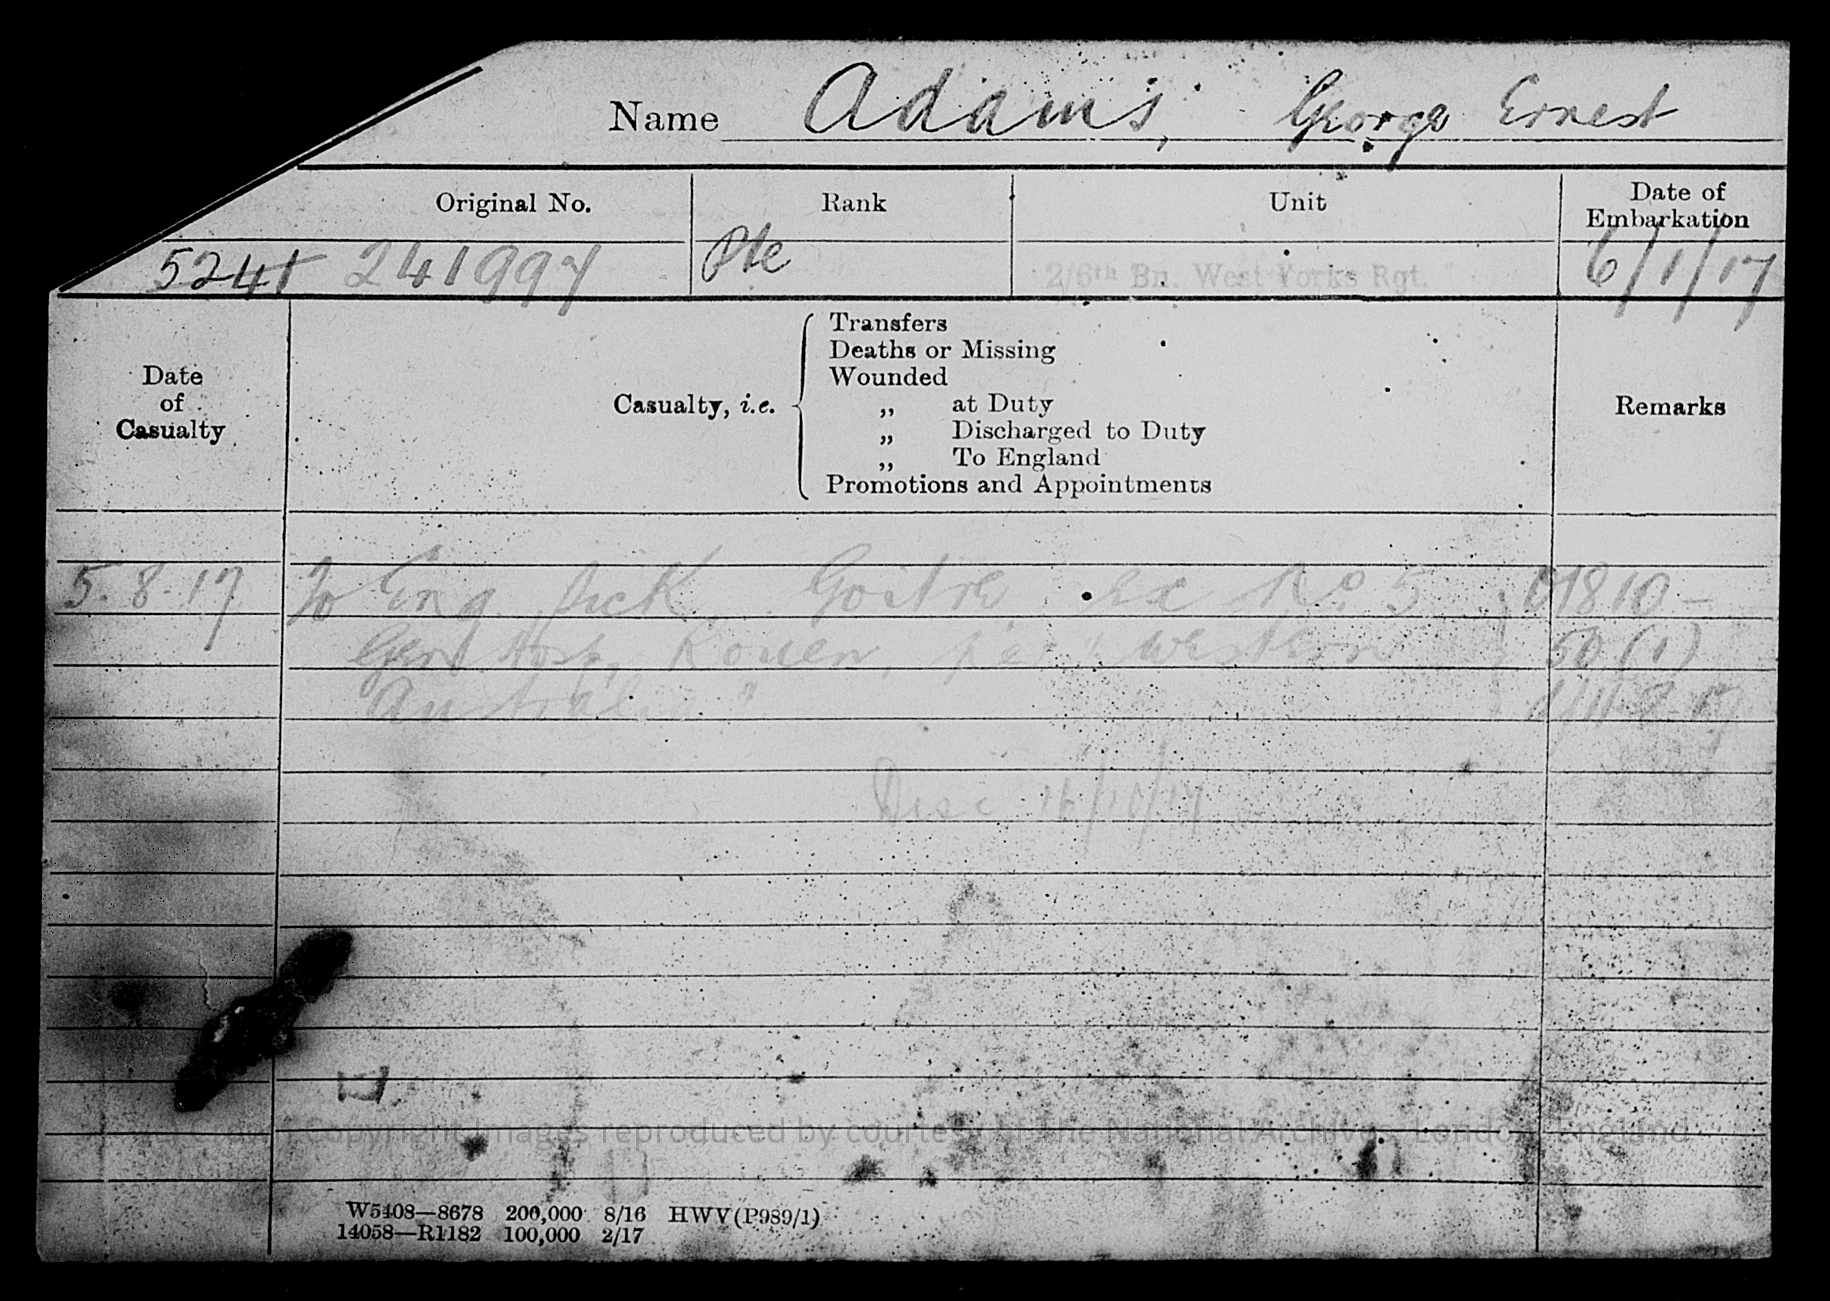 Name Adams, George Ernest
Original No. Rank Unit Date of Embarkation
5241 241997 Pte 2/6th Bn. West Yorks Rgt. 6/1/17
Date of Casualty
Casualty, i.e.
Transfers
Deaths or Missing
Wounded
„ at Duty
„ Discharged to Duty
„ To England
Promotions and Appointments
Remarks
5.8.17 To Eng. Sick Goitre ex No. 5 1810-
Gen Hosp, Rouen, per "Western 50 (1)
Australia"
Disc 16/10/17
Crown Copyright Images reproduced by courtesy of The National Archives, London, England
W5408—8678 200,000 8/16 HWV(P989/1)
14058—R1182 100,000 2/17